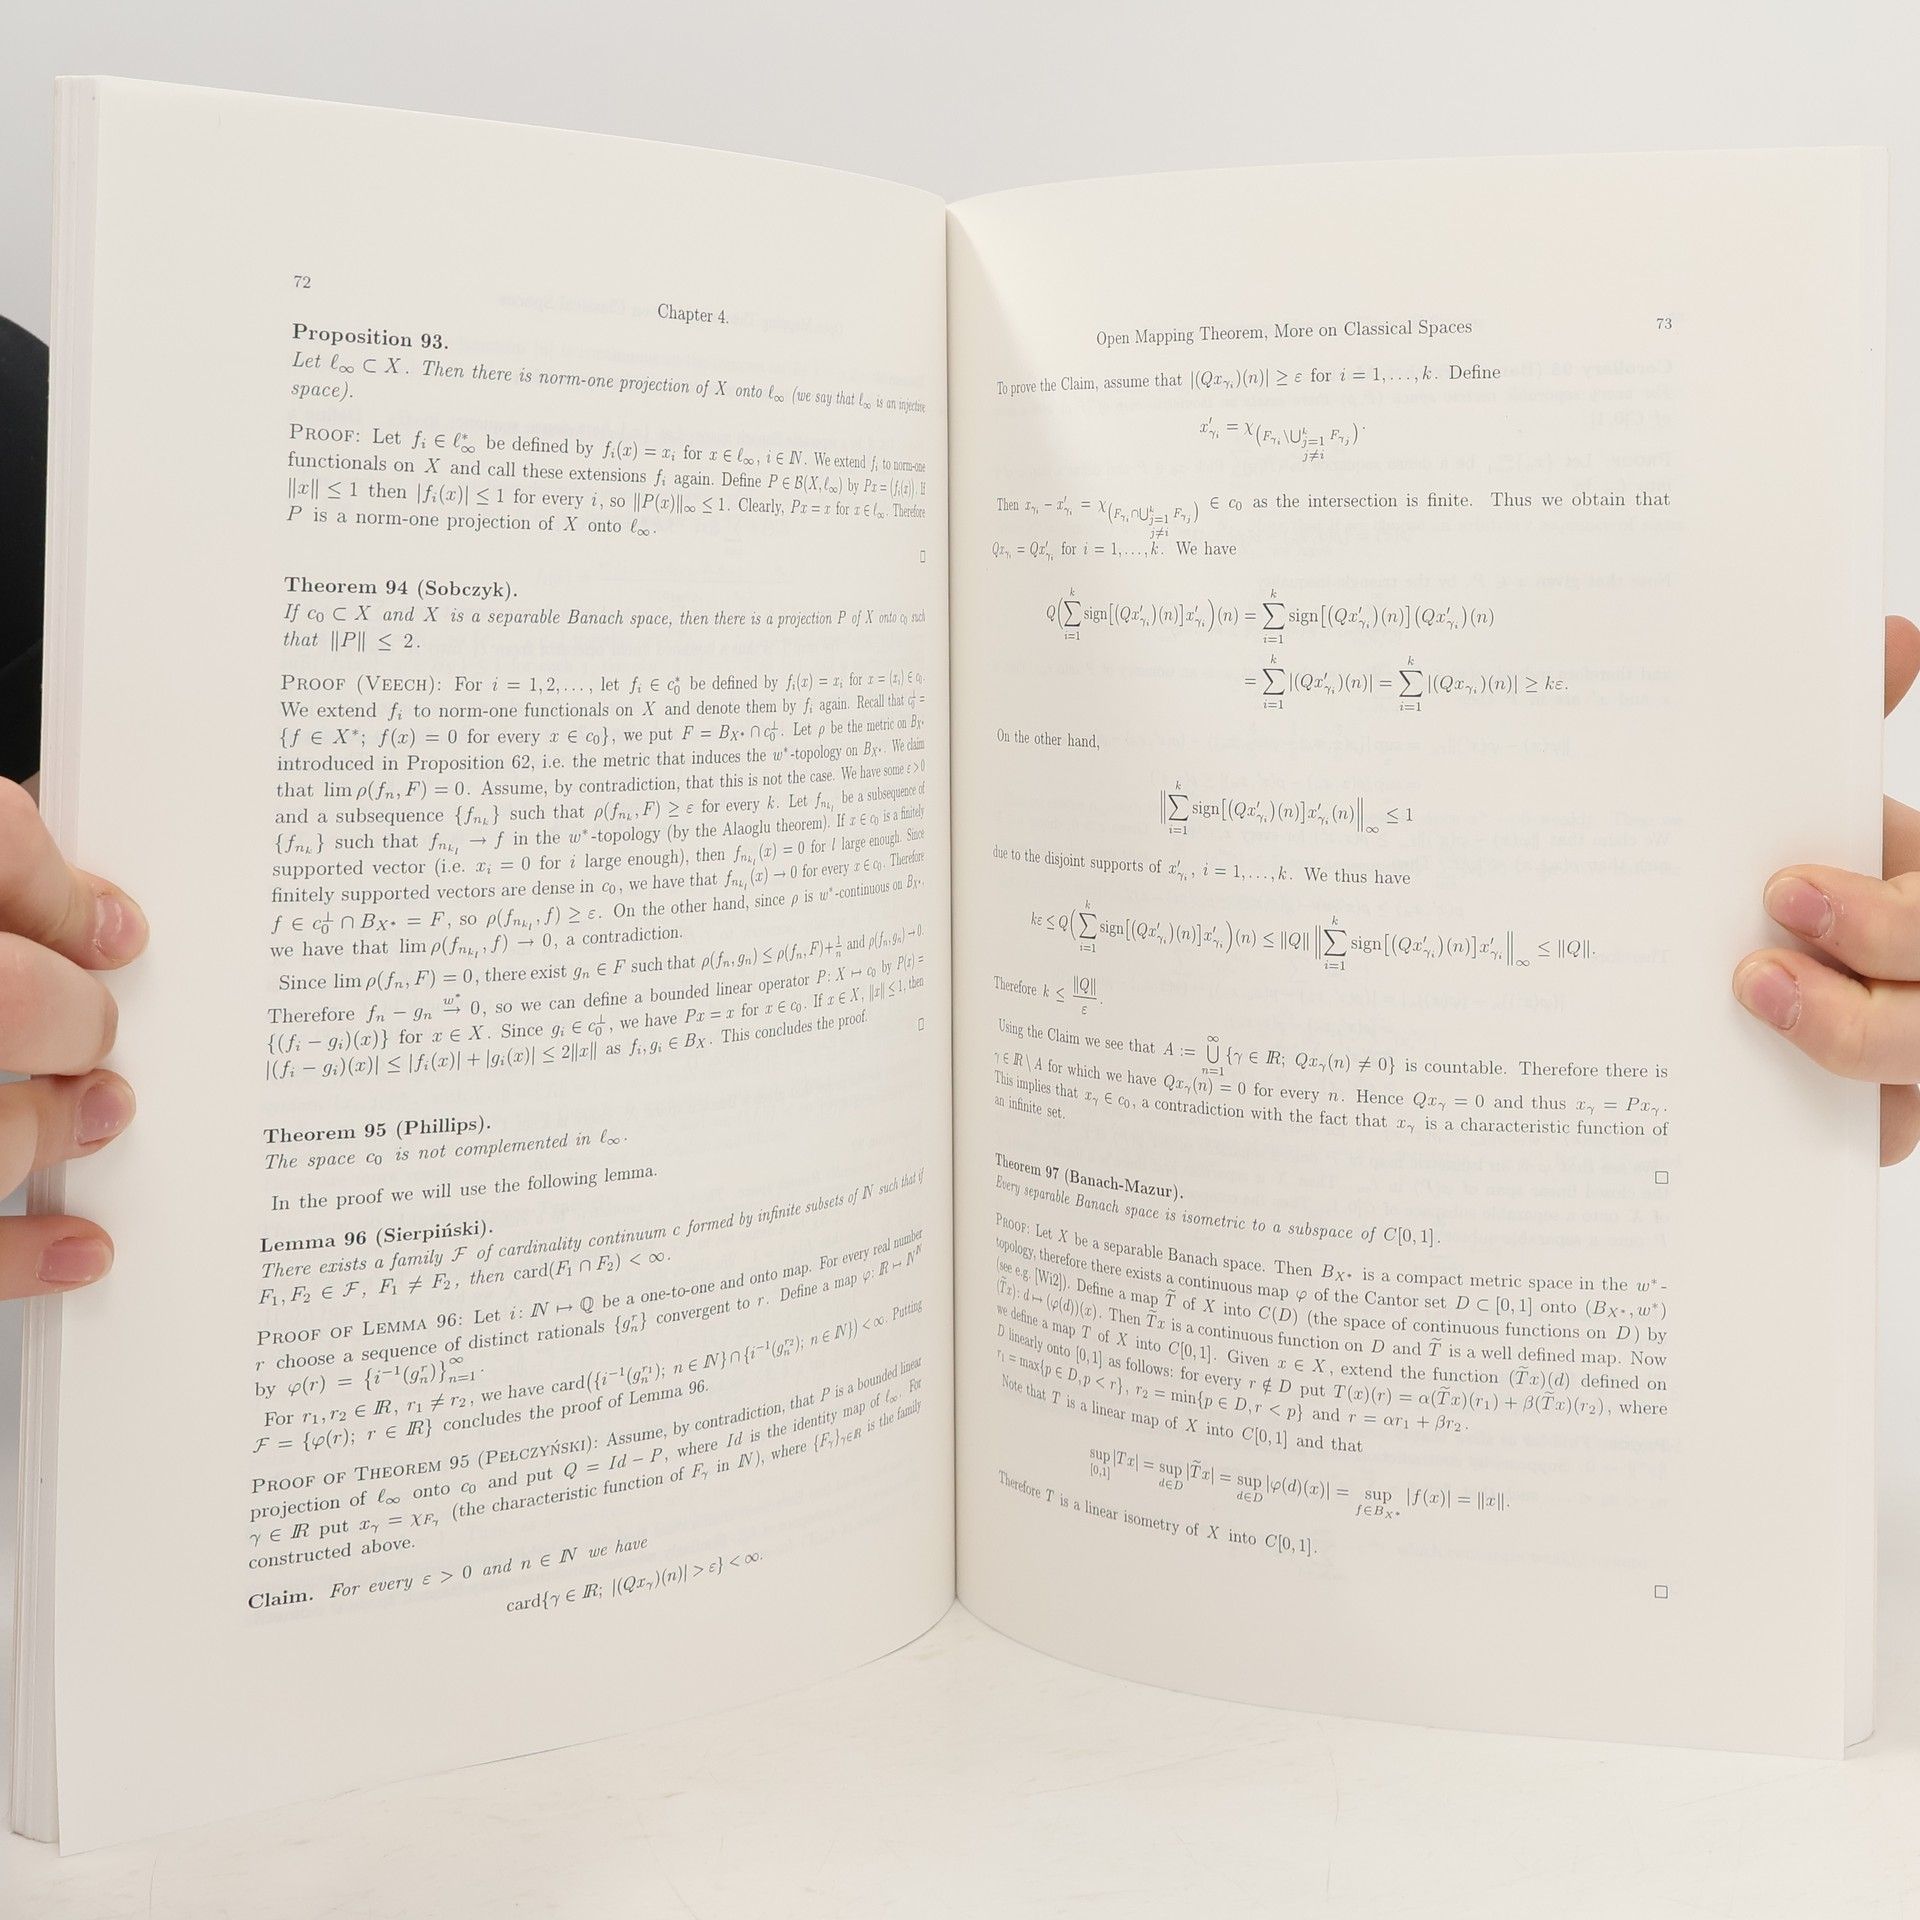 72
Chapter 4.
Proposition 93.
Let ℓ∞ ⊂ X. Then there is norm-one projection of X onto ℓ∞ (we say that ℓ∞ is an injective
space).
PROOF: Let fᵢ ∈ ℓ∞* be defined by fᵢ(x) = xᵢ for x ∈ ℓ∞, i ∈ ℕ. We extend fᵢ to norm-one
functionals on X and call these extensions fᵢ again. Define P ∈ B(X, ℓ∞) by Px = (fᵢ(x)). If
‖x‖ ≤ 1 then |fᵢ(x)| ≤ 1 for every i, so ‖P(x)‖∞ ≤ 1. Clearly, Px = x for x ∈ ℓ∞. Therefore
P is a norm-one projection of X onto ℓ∞.
□
Theorem 94 (Sobczyk).
If c₀ ⊂ X and X is a separable Banach space, then there is a projection P of X onto c₀ such
that ‖P‖ ≤ 2.
PROOF (VEECH): For i = 1, 2, …, let fᵢ ∈ c₀* be defined by fᵢ(x) = xᵢ for x = (xᵢ) ∈ c₀.
We extend fᵢ to norm-one functionals on X and denote them by fᵢ again. Recall that c₀^⊥ =
{f ∈ X*; f(x) = 0 for every x ∈ c₀}, we put F = B_{X*} ∩ c₀^⊥. Let ρ be the metric on B_{X*}
introduced in Proposition 62, i.e. the metric that induces the w*-topology on B_{X*}. We claim
that lim ρ(fₙ, F) = 0. Assume, by contradiction, that this is not the case. We have some ε > 0
and a subsequence {f_{n_k}} such that ρ(f_{n_k}, F) ≥ ε for every k. Let f_{n_{k_l}} be a subsequence of
{f_{n_k}} such that f_{n_{k_l}} → f in the w*-topology (by the Alaoglu theorem). If x ∈ c₀ is a finitely
supported vector (i.e. xᵢ = 0 for i large enough), then f_{n_{k_l}}(x) = 0 for l large enough. Since
finitely supported vectors are dense in c₀, we have that f_{n_{k_l}}(x) → 0 for every x ∈ c₀. Therefore
f ∈ c₀^⊥ ∩ B_{X*} = F, so ρ(f_{n_{k_l}}, f) ≥ ε. On the other hand, since ρ is w*-continuous on B_{X*},
we have that lim ρ(f_{n_{k_l}}, f) → 0, a contradiction.
Since lim ρ(fₙ, F) = 0, there exist gₙ ∈ F such that ρ(fₙ, gₙ) ≤ ρ(fₙ, F) + 1/n and ρ(fₙ, gₙ) → 0.
Therefore fₙ − gₙ →^{w*} 0, so we can define a bounded linear operator P: X ↦ c₀ by P(x) =
{(fᵢ − gᵢ)(x)} for x ∈ X. Since gᵢ ∈ c₀^⊥, we have Px = x for x ∈ c₀. If x ∈ X, ‖x‖ ≤ 1, then
|(fᵢ − gᵢ)(x)| ≤ |fᵢ(x)| + |gᵢ(x)| ≤ 2‖x‖ as fᵢ, gᵢ ∈ B_X. This concludes the proof.
□
Theorem 95 (Phillips).
The space c₀ is not complemented in ℓ∞.
In the proof we will use the following lemma.
Lemma 96 (Sierpiński).
There exists a family F of cardinality continuum c formed by infinite subsets of ℕ such that if
F₁, F₂ ∈ F, F₁ ≠ F₂, then card(F₁ ∩ F₂) < ∞.
PROOF OF LEMMA 96: Let i: ℕ ↦ ℚ be a one-to-one and onto map. For every real number
r choose a sequence of distinct rationals {gₙʳ} convergent to r. Define a map φ: ℝ ↦ ℕ^ℕ
by φ(r) = {i⁻¹(gₙʳ)}_{n=1}^∞.
For r₁, r₂ ∈ ℝ, r₁ ≠ r₂, we have card({i⁻¹(gₙ^{r₁}); n ∈ ℕ} ∩ {i⁻¹(gₙ^{r₂}); n ∈ ℕ}) < ∞. Putting
F = {φ(r); r ∈ ℝ} concludes the proof of Lemma 96.
PROOF OF THEOREM 95 (PEŁCZYŃSKI): Assume, by contradiction, that P is a bounded linear
projection of ℓ∞ onto c₀ and put Q = Id − P, where Id is the identity map of ℓ∞. For
γ ∈ ℝ put x_γ = χ_{F_γ} (the characteristic function of F_γ in ℕ), where {F_γ}_{γ∈ℝ} is the family
constructed above.
Claim. For every ε > 0 and n ∈ ℕ we have
card{γ ∈ ℝ; |(Qx_γ)(n)| > ε} < ∞.
Open Mapping Theorem, More on Classical Spaces
73
To prove the Claim, assume that |(Qx_{γᵢ})(n)| ≥ ε for i = 1, …, k. Define
x'_{γᵢ} = χ_{(F_{γᵢ} \ ⋃_{j=1, j≠i}^k F_{γⱼ})}.
Then x_{γᵢ} − x'_{γᵢ} = χ_{(F_{γᵢ} ∩ ⋃_{j=1, j≠i}^k F_{γⱼ})} ∈ c₀ as the intersection is finite. Thus we obtain that
Qx_{γᵢ} = Qx'_{γᵢ} for i = 1, …, k. We have
Q(∑_{i=1}^k sign[(Qx'_{γᵢ})(n)]x'_{γᵢ})(n) = ∑_{i=1}^k sign[(Qx'_{γᵢ})(n)](Qx'_{γᵢ})(n)
= ∑_{i=1}^k |(Qx'_{γᵢ})(n)| = ∑_{i=1}^k |(Qx_{γᵢ})(n)| ≥ kε.
On the other hand,
‖∑_{i=1}^k sign[(Qx'_{γᵢ})(n)]x'_{γᵢ}(n)‖_∞ ≤ 1
due to the disjoint supports of x'_{γᵢ}, i = 1, …, k. We thus have
kε ≤ Q(∑_{i=1}^k sign[(Qx'_{γᵢ})(n)]x'_{γᵢ})(n) ≤ ‖Q‖ ‖∑_{i=1}^k sign[(Qx'_{γᵢ})(n)]x'_{γᵢ}‖_∞ ≤ ‖Q‖.
Therefore k ≤ ‖Q‖/ε.
Using the Claim we see that A := ⋃_{n=1}^∞ {γ ∈ ℝ; Qx_γ(n) ≠ 0} is countable. Therefore there is
γ ∈ ℝ \ A for which we have Qx_γ(n) = 0 for every n. Hence Qx_γ = 0 and thus x_γ = Px_γ.
This implies that x_γ ∈ c₀, a contradiction with the fact that x_γ is a characteristic function of
an infinite set.
□
Theorem 97 (Banach-Mazur).
Every separable Banach space is isometric to a subspace of C[0, 1].
PROOF: Let X be a separable Banach space. Then B_{X*} is a compact metric space in the w*-
topology, therefore there exists a continuous map φ of the Cantor set D ⊂ [0, 1] onto (B_{X*}, w*)
(see e.g. [Wi2]). Define a map T̃ of X into C(D) (the space of continuous functions on D) by
(T̃x): d ↦ (φ(d))(x). Then T̃x is a continuous function on D and T̃ is a well defined map. Now
we define a map T of X into C[0, 1]. Given x ∈ X, extend the function (T̃x)(d) defined on
D linearly onto [0, 1] as follows: for every r ∉ D put T(x)(r) = α(T̃x)(r₁) + β(T̃x)(r₂), where
r₁ = max{p ∈ D, p < r}, r₂ = min{p ∈ D, r < p} and r = αr₁ + βr₂.
Note that T is a linear map of X into C[0, 1] and that
sup_{[0,1]} |Tx| = sup_{d∈D} |T̃x| = sup_{d∈D} |φ(d)(x)| = sup_{f∈B_{X*}} |f(x)| = ‖x‖.
Therefore T is a linear isometry of X into C[0, 1].
□